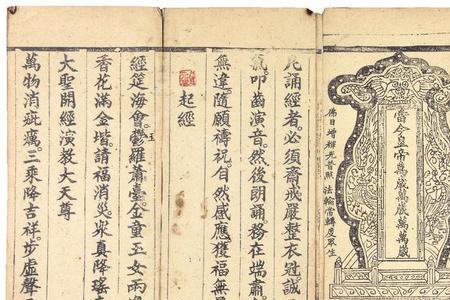 當今皇帝萬歲萬歲萬萬歲
佛日增輝光普照 法輪常轉度衆生
凡誦經者必須齋戒嚴整衣冠誠
氣叩齒演音。然後朗誦務在端肅
無違。隨願禱祝。自然感應獲福無
起經
經筵海會。玉鬱羅蕭臺。金童玉女兩
香花滿金堦。請福消災。衆真降瑤
大聖開經演教大天尊
萬物消疵癘。三乘降吉祥。步虛聲